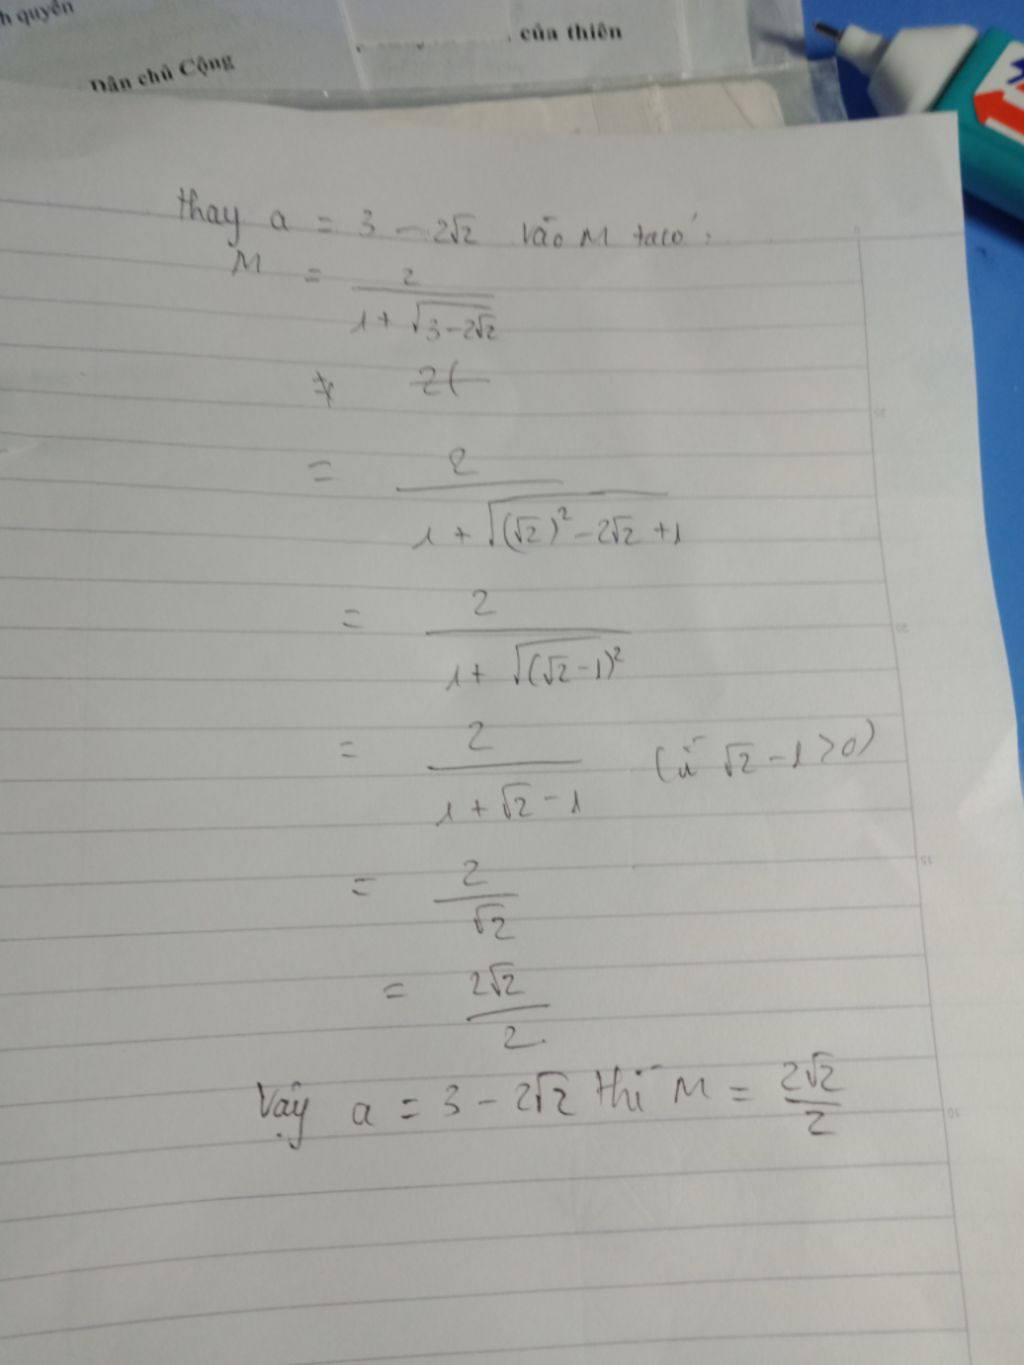 h quyền
của thiên
Dân chủ Cộng
thay a = 3 - 2√2 vào M ta có:
M = 2/(1 + √(3 - 2√2))
= 2/(1 + √((√2)² - 2√2 + 1))
= 2/(1 + √((√2 - 1)²))
= 2/(1 + √2 - 1) (vì √2 - 1 > 0)
= 2/√2
= 2√2/2
Vậy a = 3 - 2√2 thì M = 2√2/2
25
20
15
10